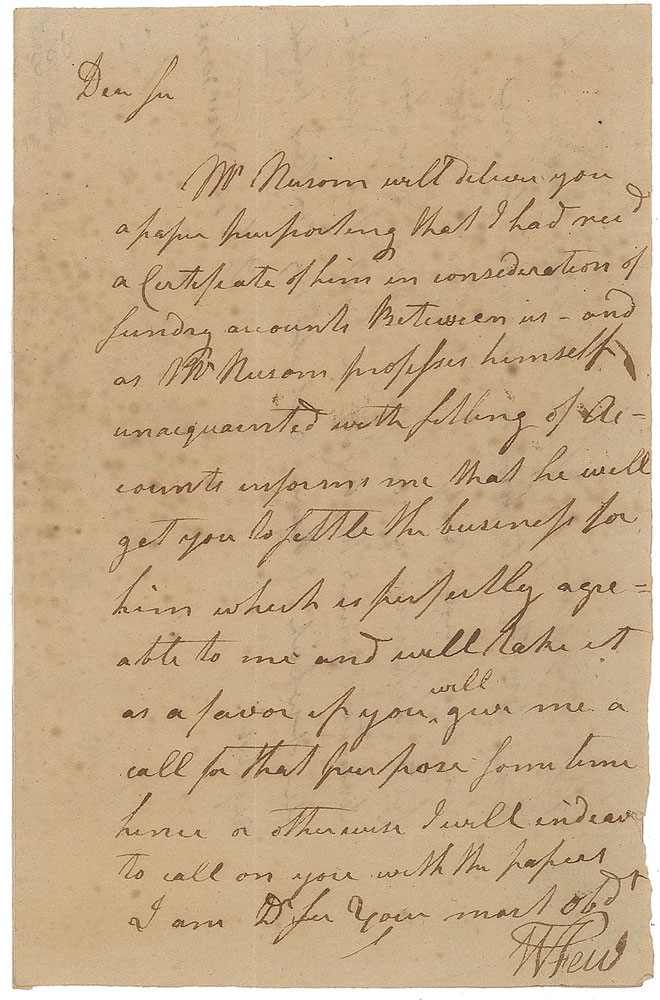 Dear Sir
Mr Nusom will deliver you
a paper purporting that I had recd
a Certificate of him in consideration of
sundry accounts Between us - and
as Mr Nusom professes himself
unacquainted with settling of Ac-
counts informs me that he will
get you to settle the business for
him which is perfectly agre=
able to me and will take it
as a favor if you will give me a
call for that purpose some time
hence or otherwise I will indeavr
to call on you with the papers
I am Dr Sir Your most Obdt
W Few